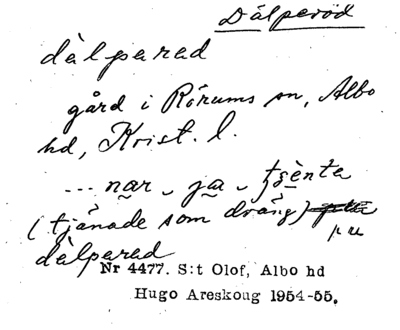 Dälperöd
dàlparad
gård i Rörums sn, Albo
hd, Krist. l.
... nar ja tsènta
(tjänade som dräng)
pu
dàlparad
Nr 4477. S:t Olof, Albo hd
Hugo Areskoug 1954-55.